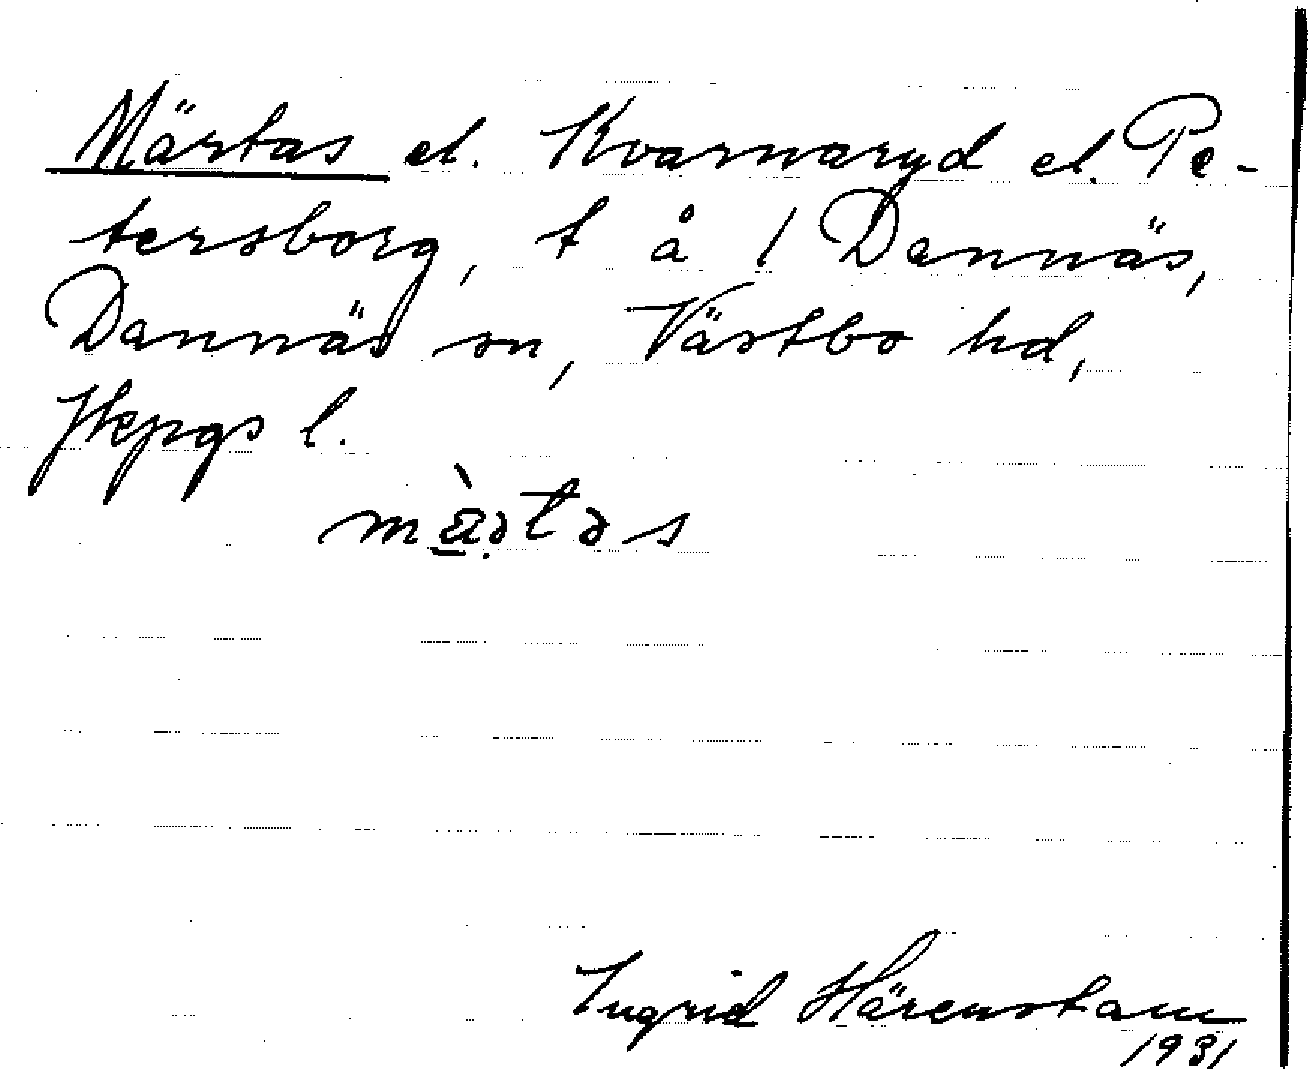 Märtas el. Kvarnaryd el. Pe-
tersborg, t å 1 Dannäs,
Dannäs sn, Västbo hd,
Jkpgs l.
mà̱ətəs
Ingrid Härenstam
1931